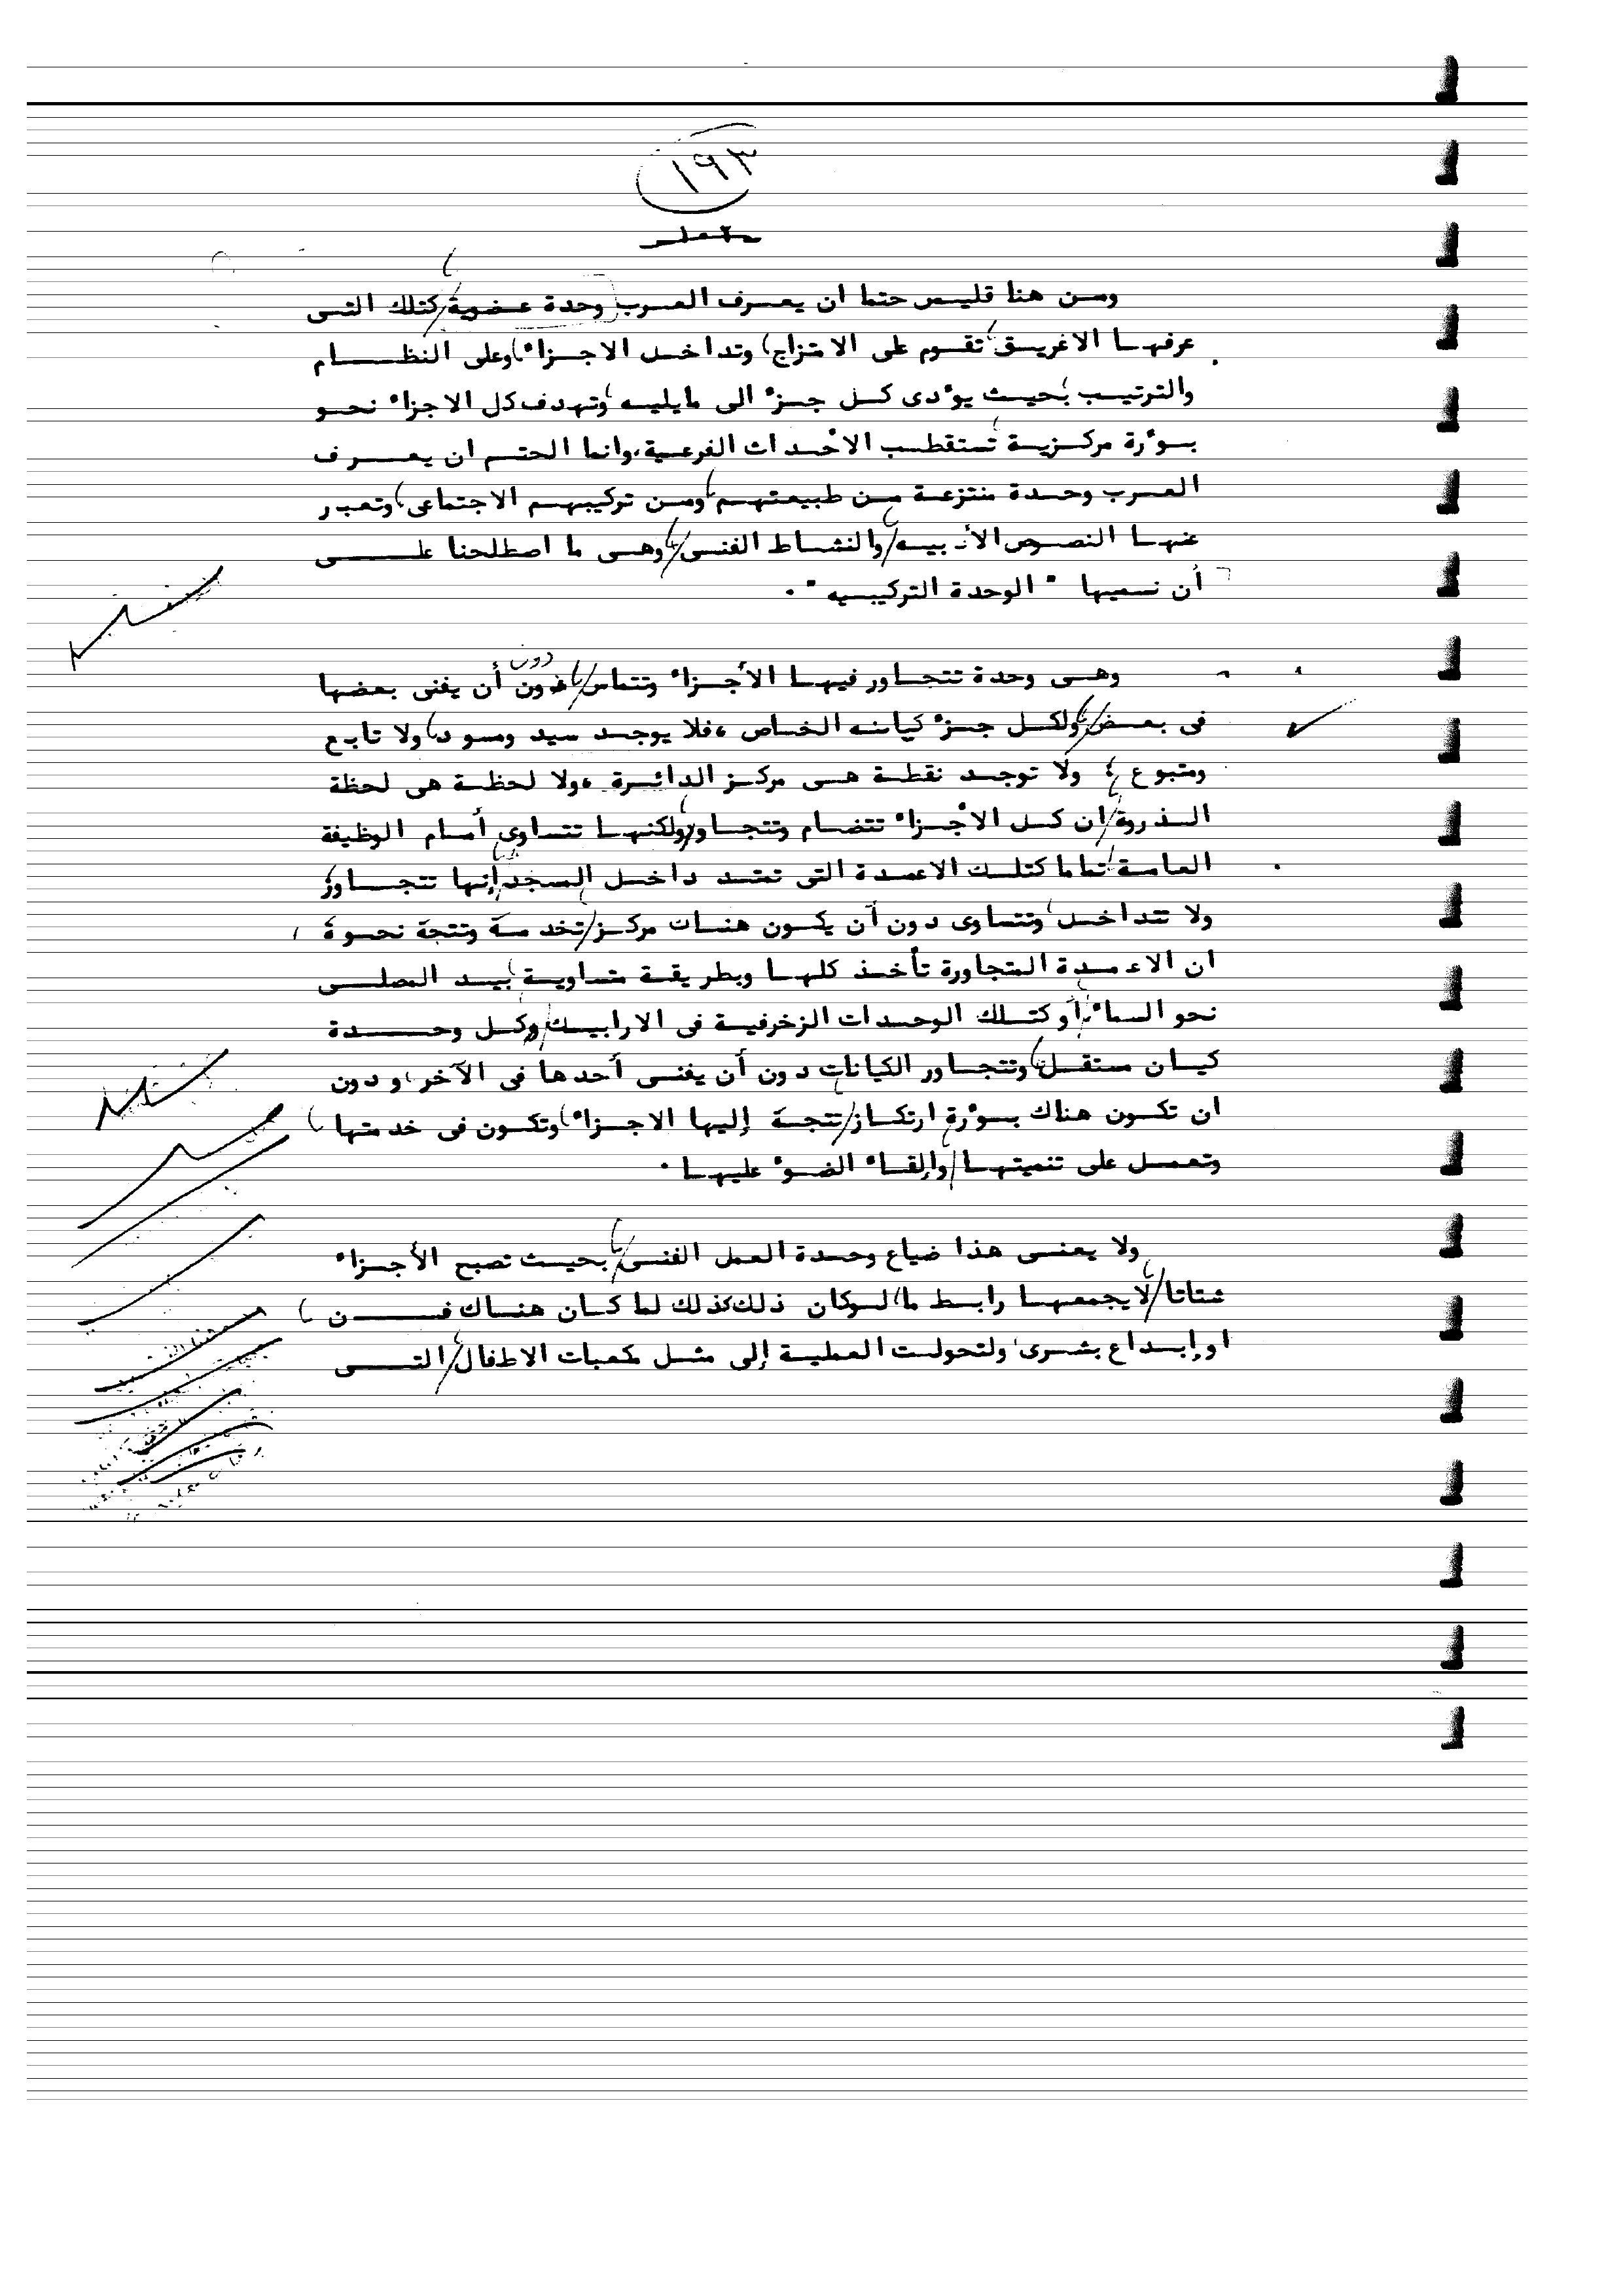 ١٩٣
ومن هنا قليس حتما ان يعرف العرب وحدة عضوية كتلك التى
عرفها الاغريق، تقوم على الامتزاج، وتداخل الاجزاء، وعلى النظام
والترتيب، بحيث يوءدى كل جزء الى مايليه، وتهدف كل الاجزاء نحو
بوءرة مركزية تستقطب الأحداث الفرعية، وانما الحتم ان يعرف
العرب وحدة منتزعة من طبيعتهم، ومن تركيبهم الاجتماعى، وتعبر
عنها النصوص الأدبيه، والنشاط الفنى، وهى ما اصطلحنا على
أن نسميها " الوحدة التركيبيه " .
وهى وحدة تتجاور فيها الأجزاء وتتماس، دون أن يفنى بعضها
فى بعض، ولكل جزء كيانه الخاص، فلا يوجد سيد ومسود، ولا تابع
ومتبوع، ولا توجد نقطة هى مركز الدائرة، ولا لحظة هى لحظة
الذروة، ان كل الأجزاء تتضام وتتجاور، ولكنها تتساوى أمام الوظيفة
العامة، تماما كتلك الاعمدة التى تمتد داخل المسجد، إنها تتجاور،
ولا تتداخل، وتتساوى دون أن يكون هناك مركز، تخدمة وتتجة نحوة،
ان الاعمدة المتجاورة تأخذ كلها وبطريقة متساوية، بيد المصلى
نحو السماء، أو كتلك الوحدات الزخرفية فى الارابيك، وكل وحدة
كيان مستقل، وتتجاور الكيانات دون أن يفنى أحدها فى الآخر، ودون
ان تكون هناك بوءرة ارتكاز، تتجة إليها الاجزاء، وتكون فى خدمتها،
وتعمل على تنميتها، وإلقاء الضوء عليها .
ولا يعنى هذا ضياع وحدة العمل الفنى، بحيث تصبح الأجزاء
شتاتا، لايجمعها رابط ما، لوكان ذلك كذلك لما كان هناك فن،
او إبداع بشرى، ولتحولت العملية إلى مثل مكعبات الاطفال، التى